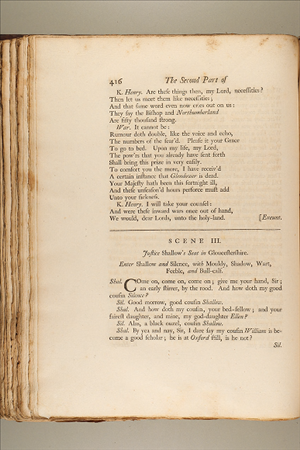 416 The Second Part of
K. Henry. Are these things then, my Lord, necessities?
Then let us meet them like necessities;
And that same word even now cries out on us:
They say the Bishop and Northumberland
Are fifty thousand strong.
War. It cannot be:
Rumour doth double, like the voice and echo,
The numbers of the fear'd. Please it your Grace
To go to bed. Upon my life, my Lord,
The pow'rs that you already have sent forth
Shall bring this prize in very easily.
To comfort you the more, I have receiv'd
A certain instance that Glendower is dead.
Your Majesty hath been this fortnight ill,
And these unseason'd hours perforce must add
Unto your sickness.
K. Henry. I will take your counsel:
And were these inward wars once out of hand,
We would, dear Lords, unto the holy-land. [Exeunt.
SCENE III.
Justice Shallow's Seat in Gloucestershire.
Enter Shallow and Silence, with Mouldy, Shadow, Wart,
Feeble, and Bull-calf.
Shal. COme on, come on, come on; give me your hand, Sir;
an early stirrer, by the rood. And how doth my good
cousin Silence?
Sil. Good morrow, good cousin Shallow.
Shal. And how doth my cousin, your bed-fellow; and your
fairest daughter, and mine, my god-daughter Ellen?
Sil. Alas, a black ouzel, cousin Shallow.
Shal. By yea and nay, Sir, I dare say my cousin William is be-
come a good scholar; he is at Oxford still, is he not?
Sil.